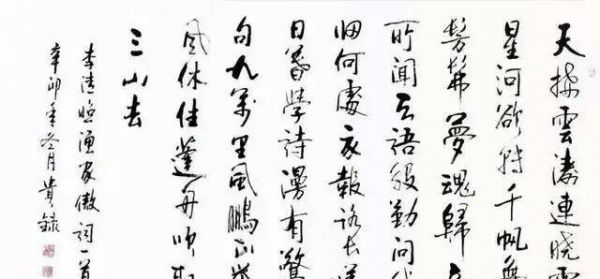 天接雲濤連曉霧
星河欲轉千帆舞
髣髴夢魂歸
所聞天語殷勤問
歸何處我報路長嗟
日暮學詩漫有驚
句九萬里風鵬正
風休住蓬舟吹取
三山去
李清照漁家傲詞一首
辛卯年冬月貴錄